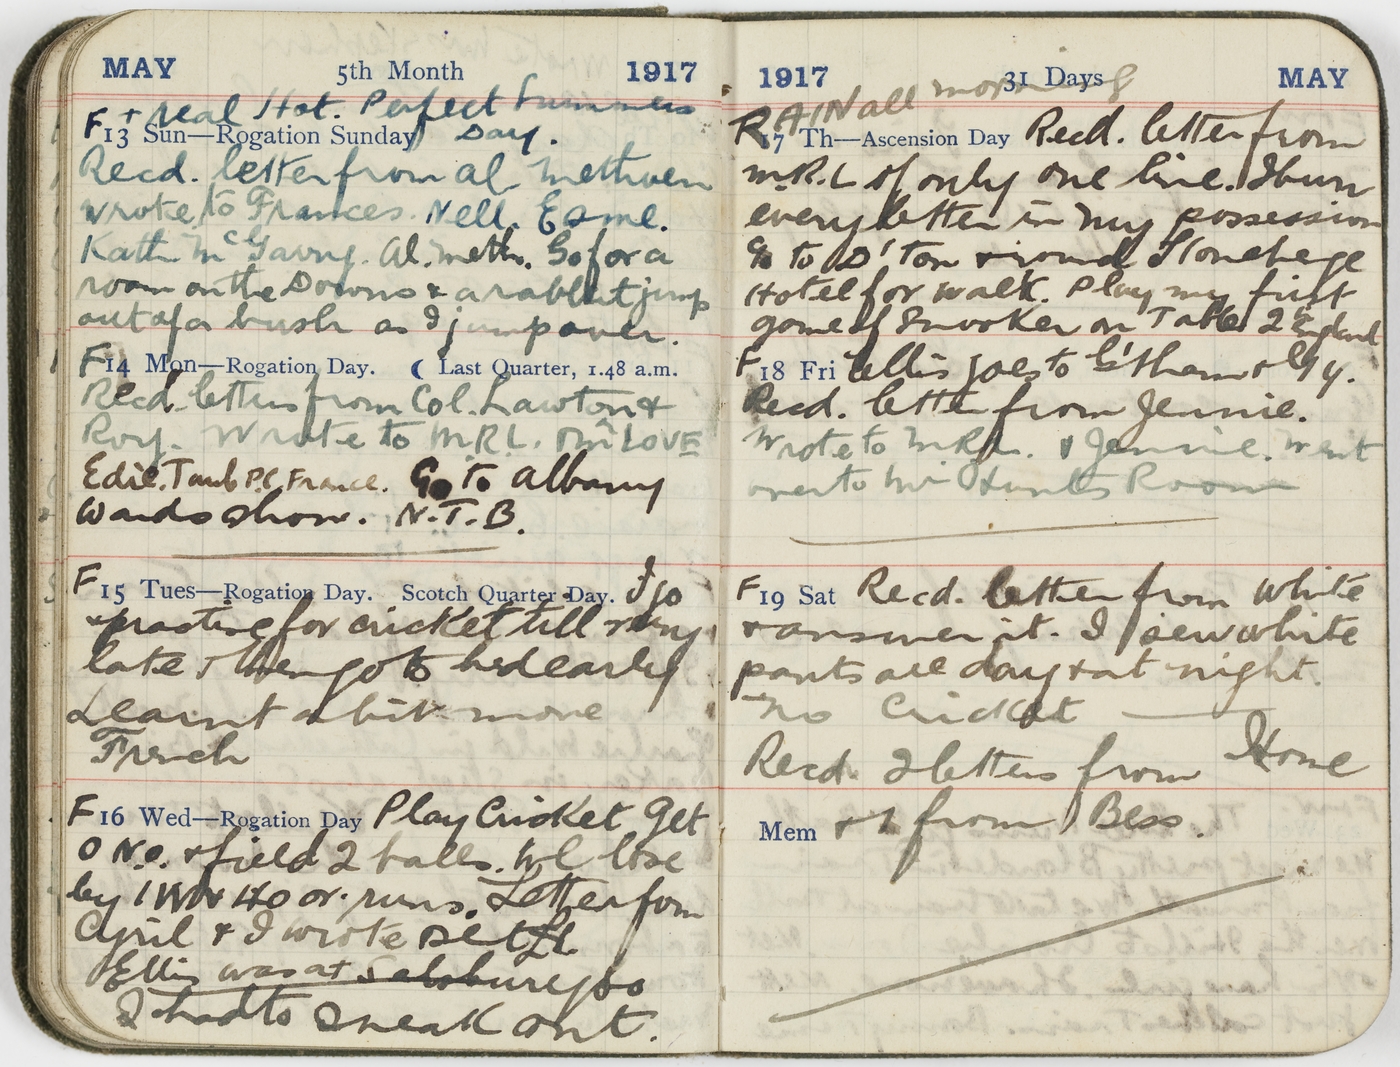 MAY 5th Month 1917
F + real Hot. Perfect Summers
13 Sun—Rogation Sunday Day.
Recd. letter from Al Methven
wrote to Frances. Nell. Esme.
Kath McGavry. Al. Meth. Go for a
roam on the Downs & a rabbit jump
out of a bush as I jump over.
F 14 Mon—Rogation Day. ☾ Last Quarter, 1.48 a.m.
Recd. letters from Col. Lawton &
Roy. Wrote to M.R.L. LOVE
Edie. P.C. France. Go to Albany
Wards show. N.T.B.
F 15 Tues—Rogation Day. Scotch Quarter Day. I go
for cricket till very
late & then go to bed early
Learnt a bit more
French
F 16 Wed—Rogation Day Play Cricket Get
0 N.O. & field 2 balls. We lose
by 1 W & 40 or runs. Letter from
Cyril & I wrote
Ellis was at Salsbury so
I had to sneak out.
1917 31 Days MAY
RAIN all morning
F 17 Th—Ascension Day Recd. letter from
M.R.L of only one line. I burn
every letter in my possession
Go to D'ton & round Stonehege
Hotel for walk. Play my first
game of Snooker on Table 2 England
F 18 Fri Ellis goes to &
Recd. letter from Jennie.
Wrote to M.R.L. & Jennie. Went
over to Mr Hunts Room
F 19 Sat Recd. letter from White
& answer it. I sew white
pants all day & at night.
No Cricket
Recd. 2 letters from Home
Mem & 1 from Bess.